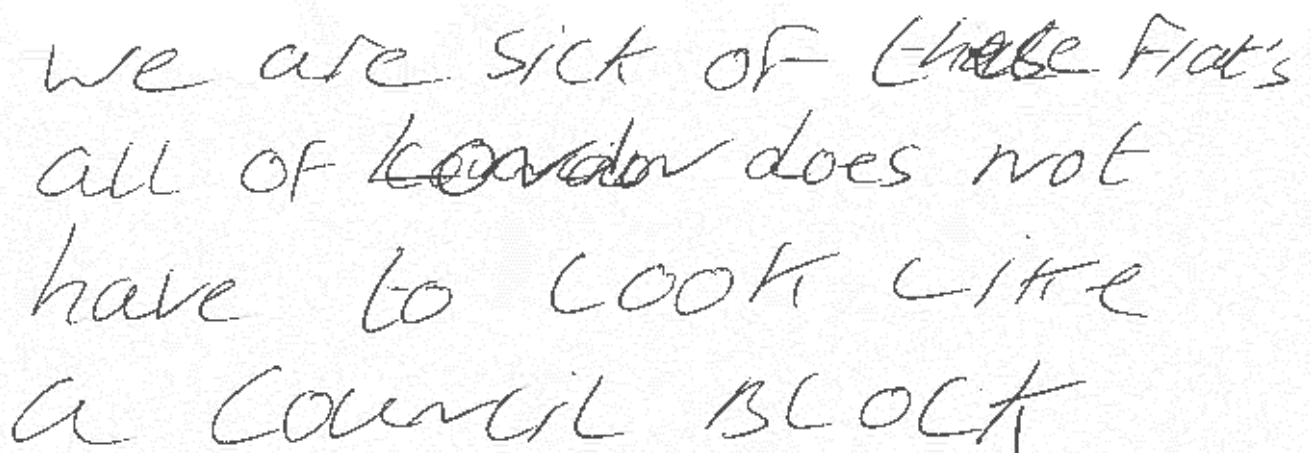 we are sick of these Flat's
all of London does not
have to look like
a council BLOCK